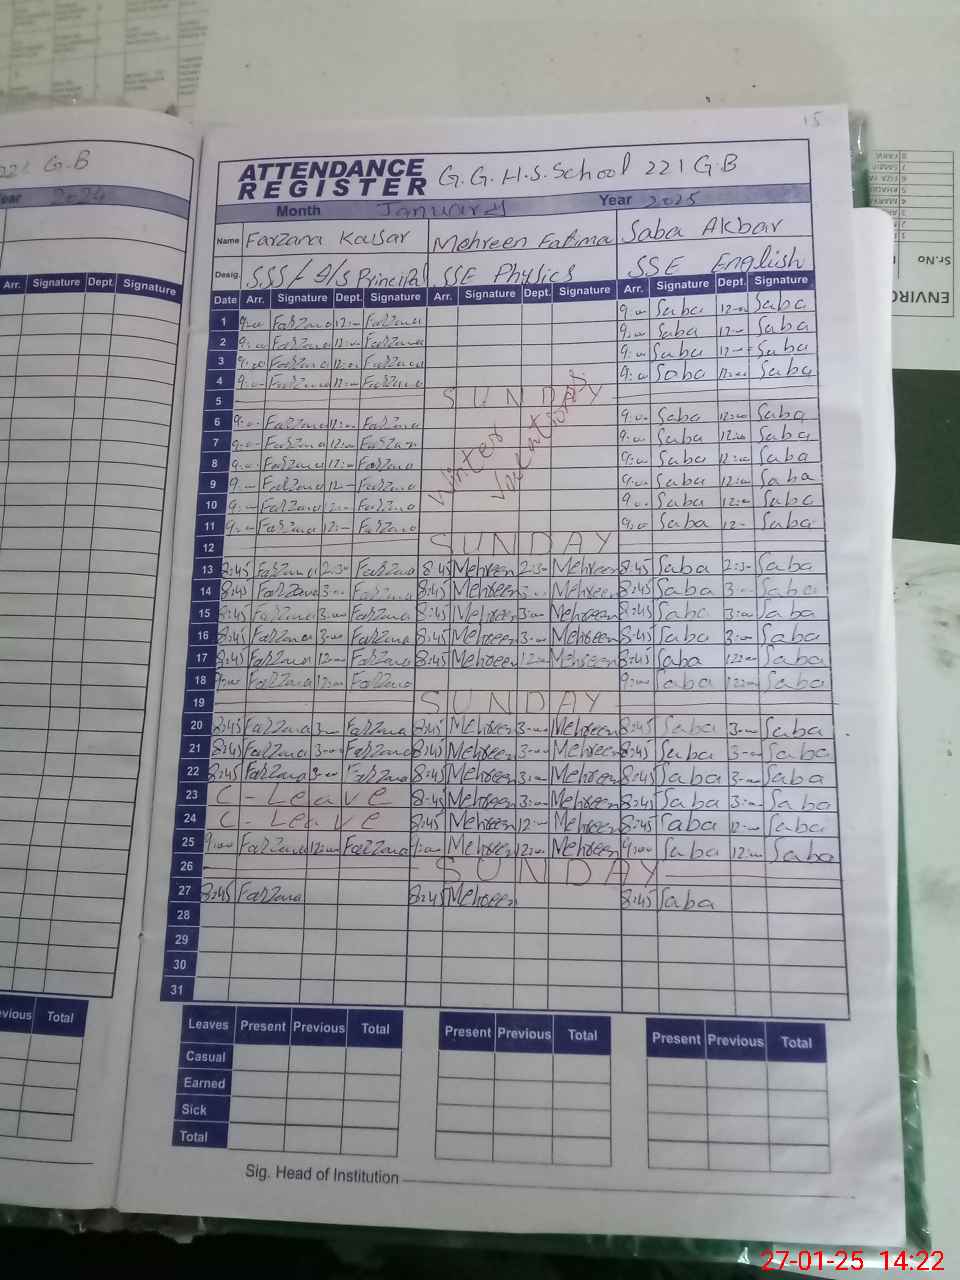 15
221 G.B
ATTENDANCE REGISTER G.G.H.S.School 221 G.B
Year 2024
Month January Year 2025
Name Farzana Kausar Mehreen Fatima Saba Akbar
Desig. SSS/ Principal SSE Physics SSE English
Arr. Signature Dept. Signature
Date Arr. Signature Dept. Signature Arr. Signature Dept. Signature Arr. Signature Dept. Signature
1 9:00 Farzana 12:00 Farzana 9:00 Saba 12:00 Saba
2 9:00 Farzana 12:00 Farzana 9:00 Saba 12:00 Saba
3 9:00 Farzana 12:00 Farzana 9:00 Saba 12:00 Saba
4 9:00 Farzana 12:00 Farzana 9:00 Saba 12:00 Saba
5 SUNDAY
6 9:00 Farzana 12:00 Farzana 9:00 Saba 12:00 Saba
7 9:00 Farzana 12:00 Farzana 9:00 Saba 12:00 Saba
8 9:00 Farzana 12:00 Farzana Winter 9:00 Saba 12:00 Saba
9 9:00 Farzana 12:00 Farzana 9:00 Saba 12:00 Saba
10 9:00 Farzana 12:00 Farzana 9:00 Saba 12:00 Saba
11 9:00 Farzana 12:00 Farzana 9:00 Saba 12:00 Saba
12 SUNDAY
13 8:45 Farzana 2:30 Farzana 8:45 Mehreen 2:30 Mehreen 8:45 Saba 2:30 Saba
14 8:45 Farzana 3:00 Farzana 8:45 Mehreen 3:00 Mehreen 8:45 Saba 3:00 Saba
15 8:45 Farzana 3:00 Farzana 8:45 Mehreen 3:00 Mehreen 8:45 Saba 3:00 Saba
16 8:45 Farzana 3:00 Farzana 8:45 Mehreen 3:00 Mehreen 8:45 Saba 3:00 Saba
17 8:45 Farzana 12:00 Farzana 8:45 Mehreen 12:00 Mehreen 8:45 Saba 12:00 Saba
18 9:00 Farzana 12:00 Farzana 9:00 Saba 12:00 Saba
19 SUNDAY
20 8:45 Farzana 3:00 Farzana 8:45 Mehreen 3:00 Mehreen 8:45 Saba 3:00 Saba
21 8:45 Farzana 3:00 Farzana 8:45 Mehreen 3:00 Mehreen 8:45 Saba 3:00 Saba
22 8:45 Farzana 3:00 Farzana 8:45 Mehreen 3:00 Mehreen 8:45 Saba 3:00 Saba
23 C-Leave 8:45 Mehreen 3:00 Mehreen 8:45 Saba 3:00 Saba
24 C-Leave 8:45 Mehreen 12:00 Mehreen 8:45 Saba 12:00 Saba
25 9:00 Farzana 12:00 Farzana 9:00 Mehreen 12:00 Mehreen 9:00 Saba 12:00 Saba
26 SUNDAY
27 8:45 Farzana 8:45 Mehreen 8:45 Saba
28
29
30
31
Total
Leaves Present Previous Total Present Previous Total Present Previous Total
Casual
Earned
Sick
Total
Sig. Head of Institution
Sr.No
ENVIRO
27-01-25 14:22